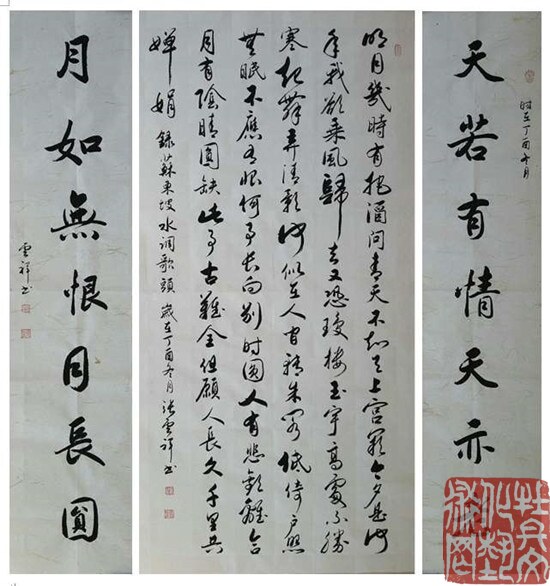 天若有情天亦
时在丁酉冬月
明月幾時有把酒問青天不知天上宮闕今夕是何
年我欲乘風歸去又恐瓊樓玉宇高處不勝
寒起舞弄清影何似在人间轉朱閣低倚户照
無眠不應有恨何事长向别时圆人有悲歡離合
月有陰晴圓缺此事古難全但願人長久千里共
嬋娟 録蘇東坡水调歌頭 歲在丁酉冬月 张雲祥书
月如無恨月長圓
雲祥书